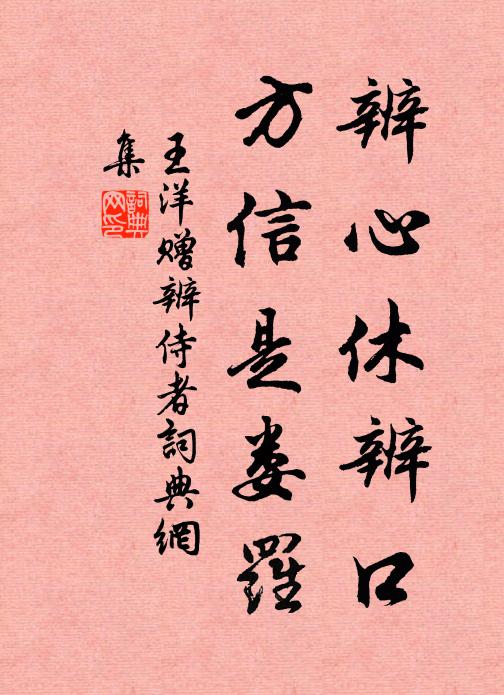 辨心休辨口
方信是娄羅
王洋贈辨侍者詞典網
集
詞典
网印